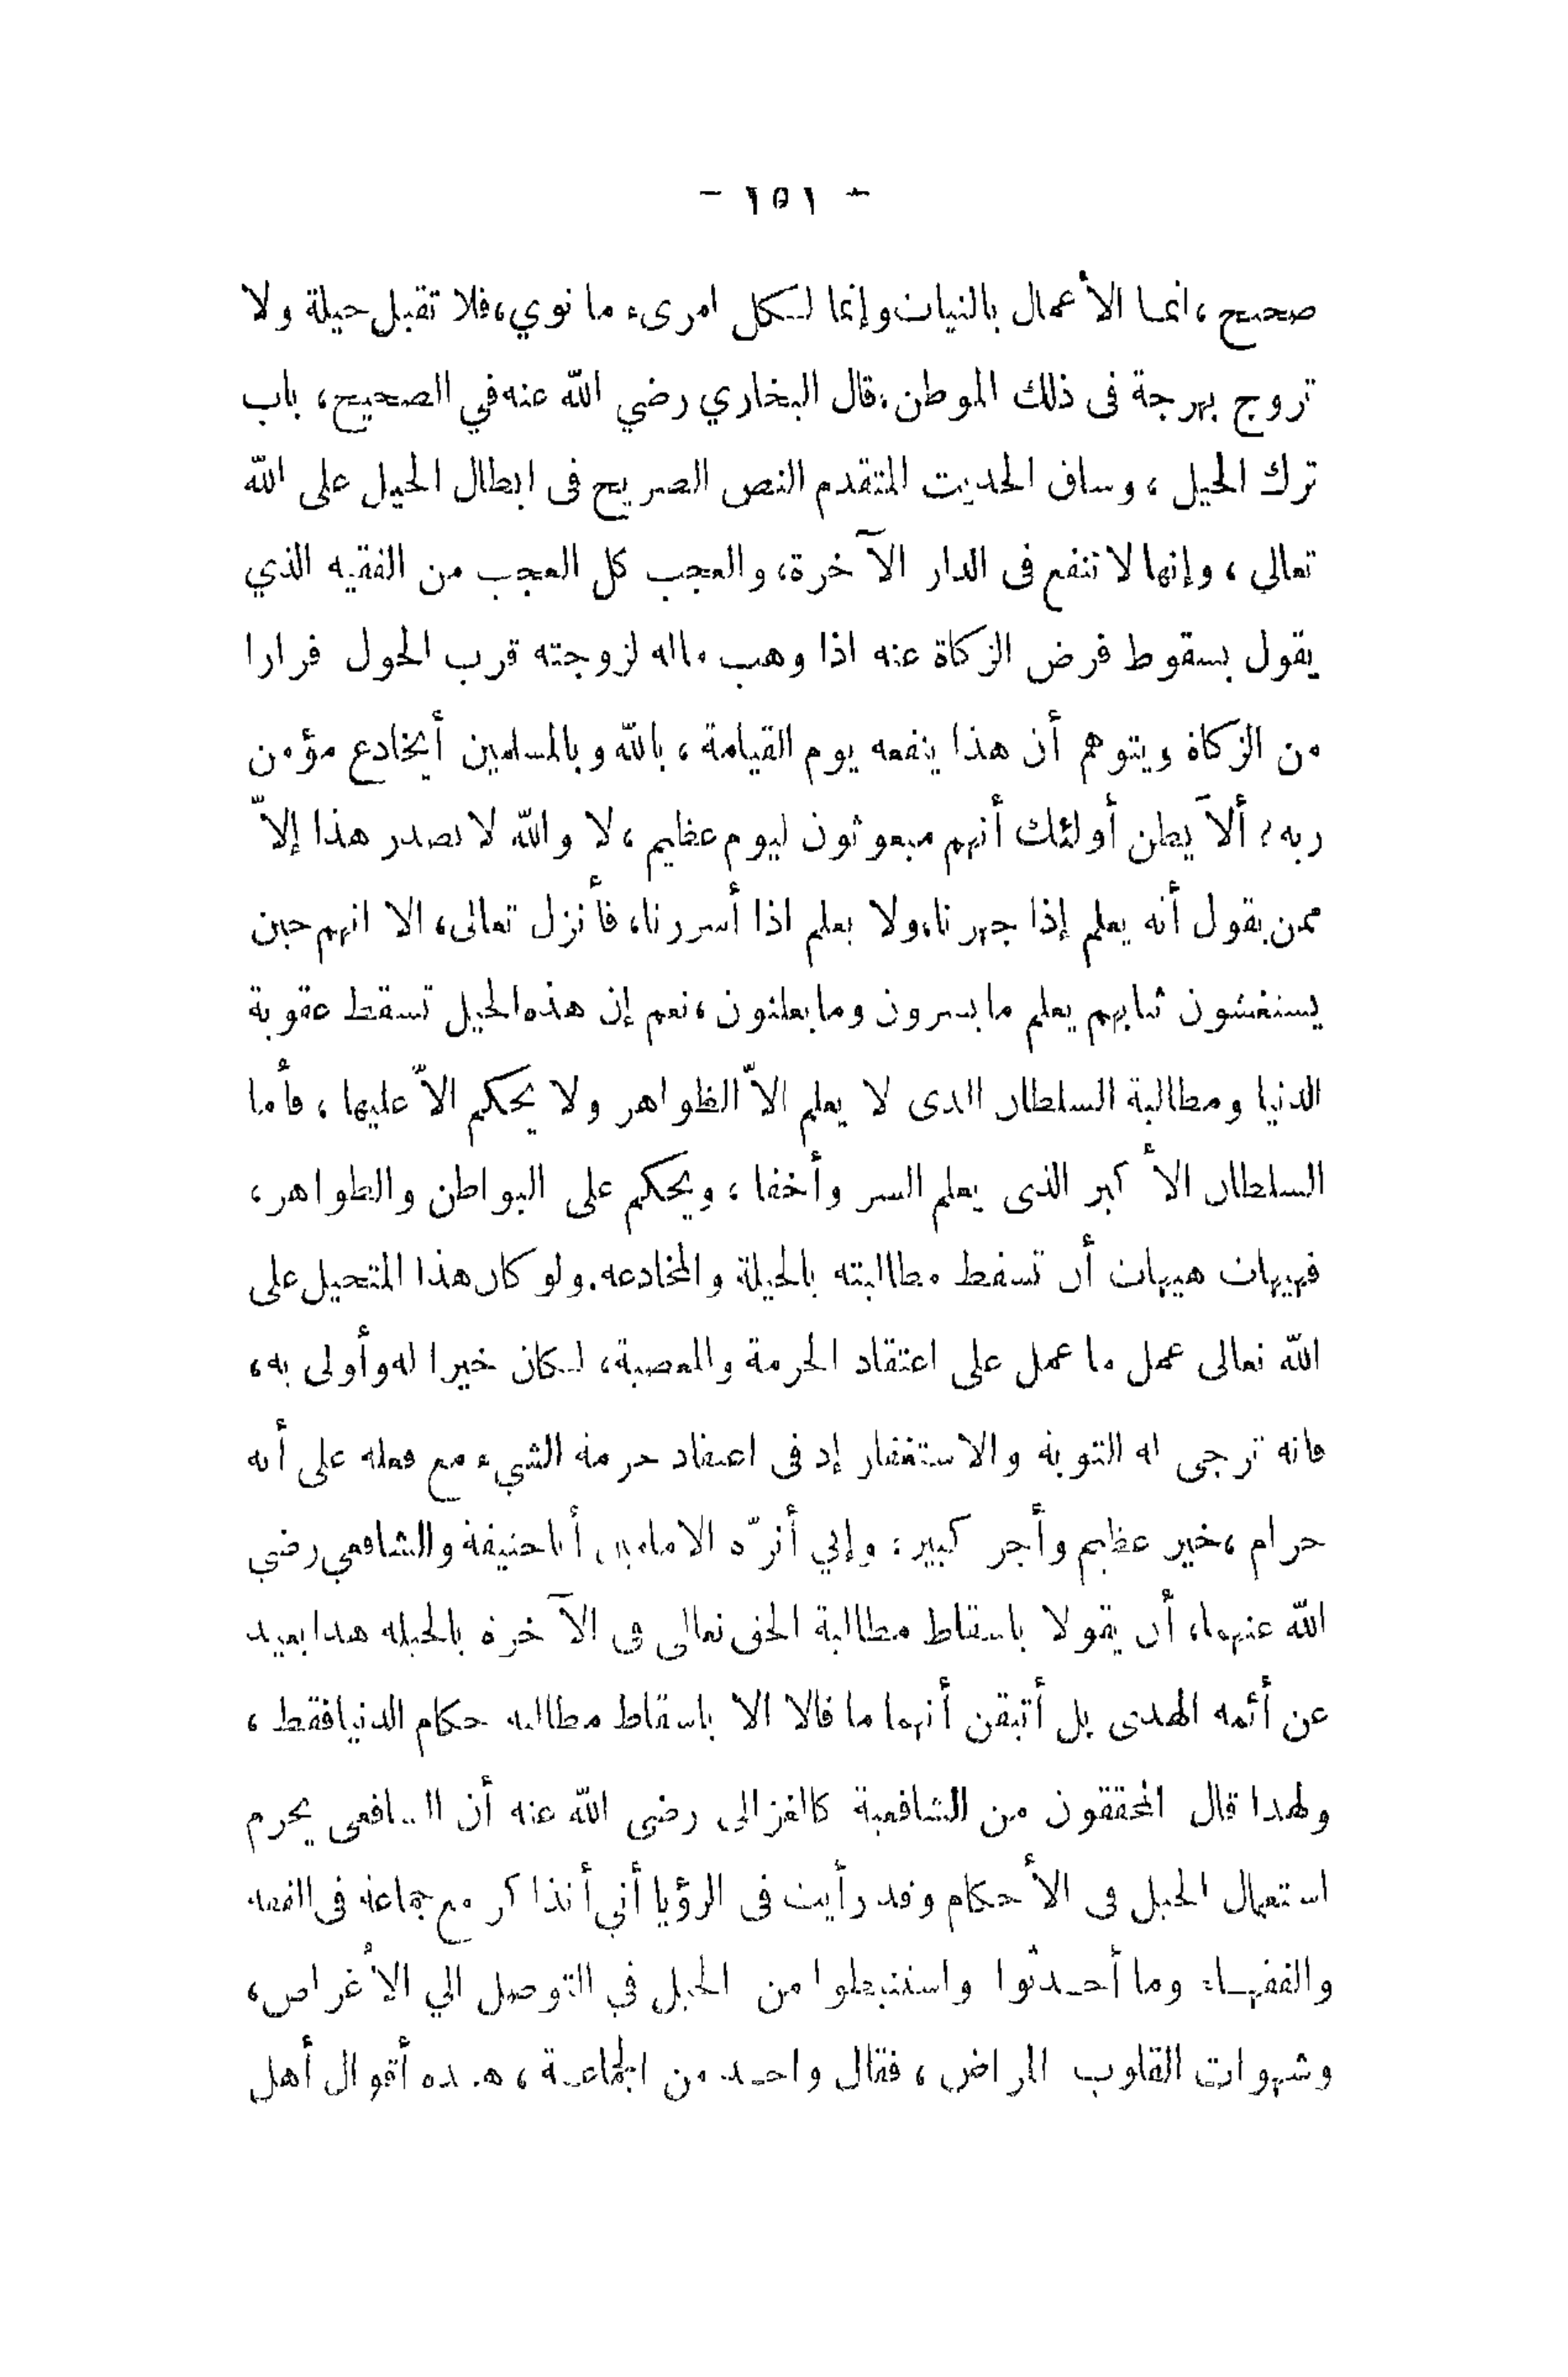 - ١٥١ -
صحيح ، انما الأعمال بالنيات وإنما لكل امرىء ما نوي، فلا تقبل حيلة ولا
تروج بهرجة فى ذلك الموطن. قال البخاري رضي الله عنه في الصحيح، باب
ترك الحيل ، وساق الحديث المتقدم النص الصريح فى ابطال الحيل على الله
تعالى ، وإنها لا تنفع فى الدار الآخرة، والعجب كل العجب من الفقيه الذي
يقول بسقوط فرض الزكاة عنه اذا وهب ماله لزوجته قرب الحول فرارا
من الزكاة ويتوهم أن هذا ينفعه يوم القيامة ، بالله وبالمسلمين أيخادع مؤمن
ربه؟ ألاَ يظن أولئك أنهم مبعوثون ليوم عظيم ، لا والله لا يصدر هذا إلاّ
ممن يقول أنه يعلم إذا جهرنا، ولا يعلم اذا أسررنا، فأنزل تعالى، الا انهم حين
يستغشون ثيابهم يعلم ما يسرون وما يعلنون ، نعم إن هذه الحيل تسقط عقوبة
الدنيا ومطالبة السلطان الذى لا يعلم الاّ الظواهر ولا يحكم الاّ عليها ، فأما
السلطان الأكبر الذى يعلم السر وأخفا ، ويحكم على البواطن والظواهر ،
فهيهات هيهات أن تسقط مطالبته بالحيلة والمخادعه. ولو كان هذا المتحيل على
الله تعالى عمل ما عمل على اعتقاد الحرمة والمعصية، لكان خيرا له وأولى به،
فانه ترجى له التوبة والاستغفار إذ فى اعتقاد حرمة الشيء مع فعله على أنه
حرام ، خير عظيم وأجر كبير : وإني أنزّه الامامين أبا حنيفة والشافعي رضي
الله عنهما، أن يقولا باسقاط مطالبة الحق تعالى فى الآخرة بالحيله هذا بعيد
عن أئمه الهدى بل أتيقن أنهما ما قالا الا باسقاط مطالبه حكام الدنيا فقط ،
ولهذا قال المحققون من الشافعية كالغزالى رضى الله عنه أن الشافعى يحرم
استعمال الحيل فى الأحكام وقد رأيت فى الرؤيا أني أتذاكر مع جماعة فى الفقه
والفقهاء وما أحدثوا واستنبطوا من الحيل في التوصل الي الأغراض،
وشهوات القلوب المراض ، فقال واحد من الجماعة ، هذه أقوال أهل